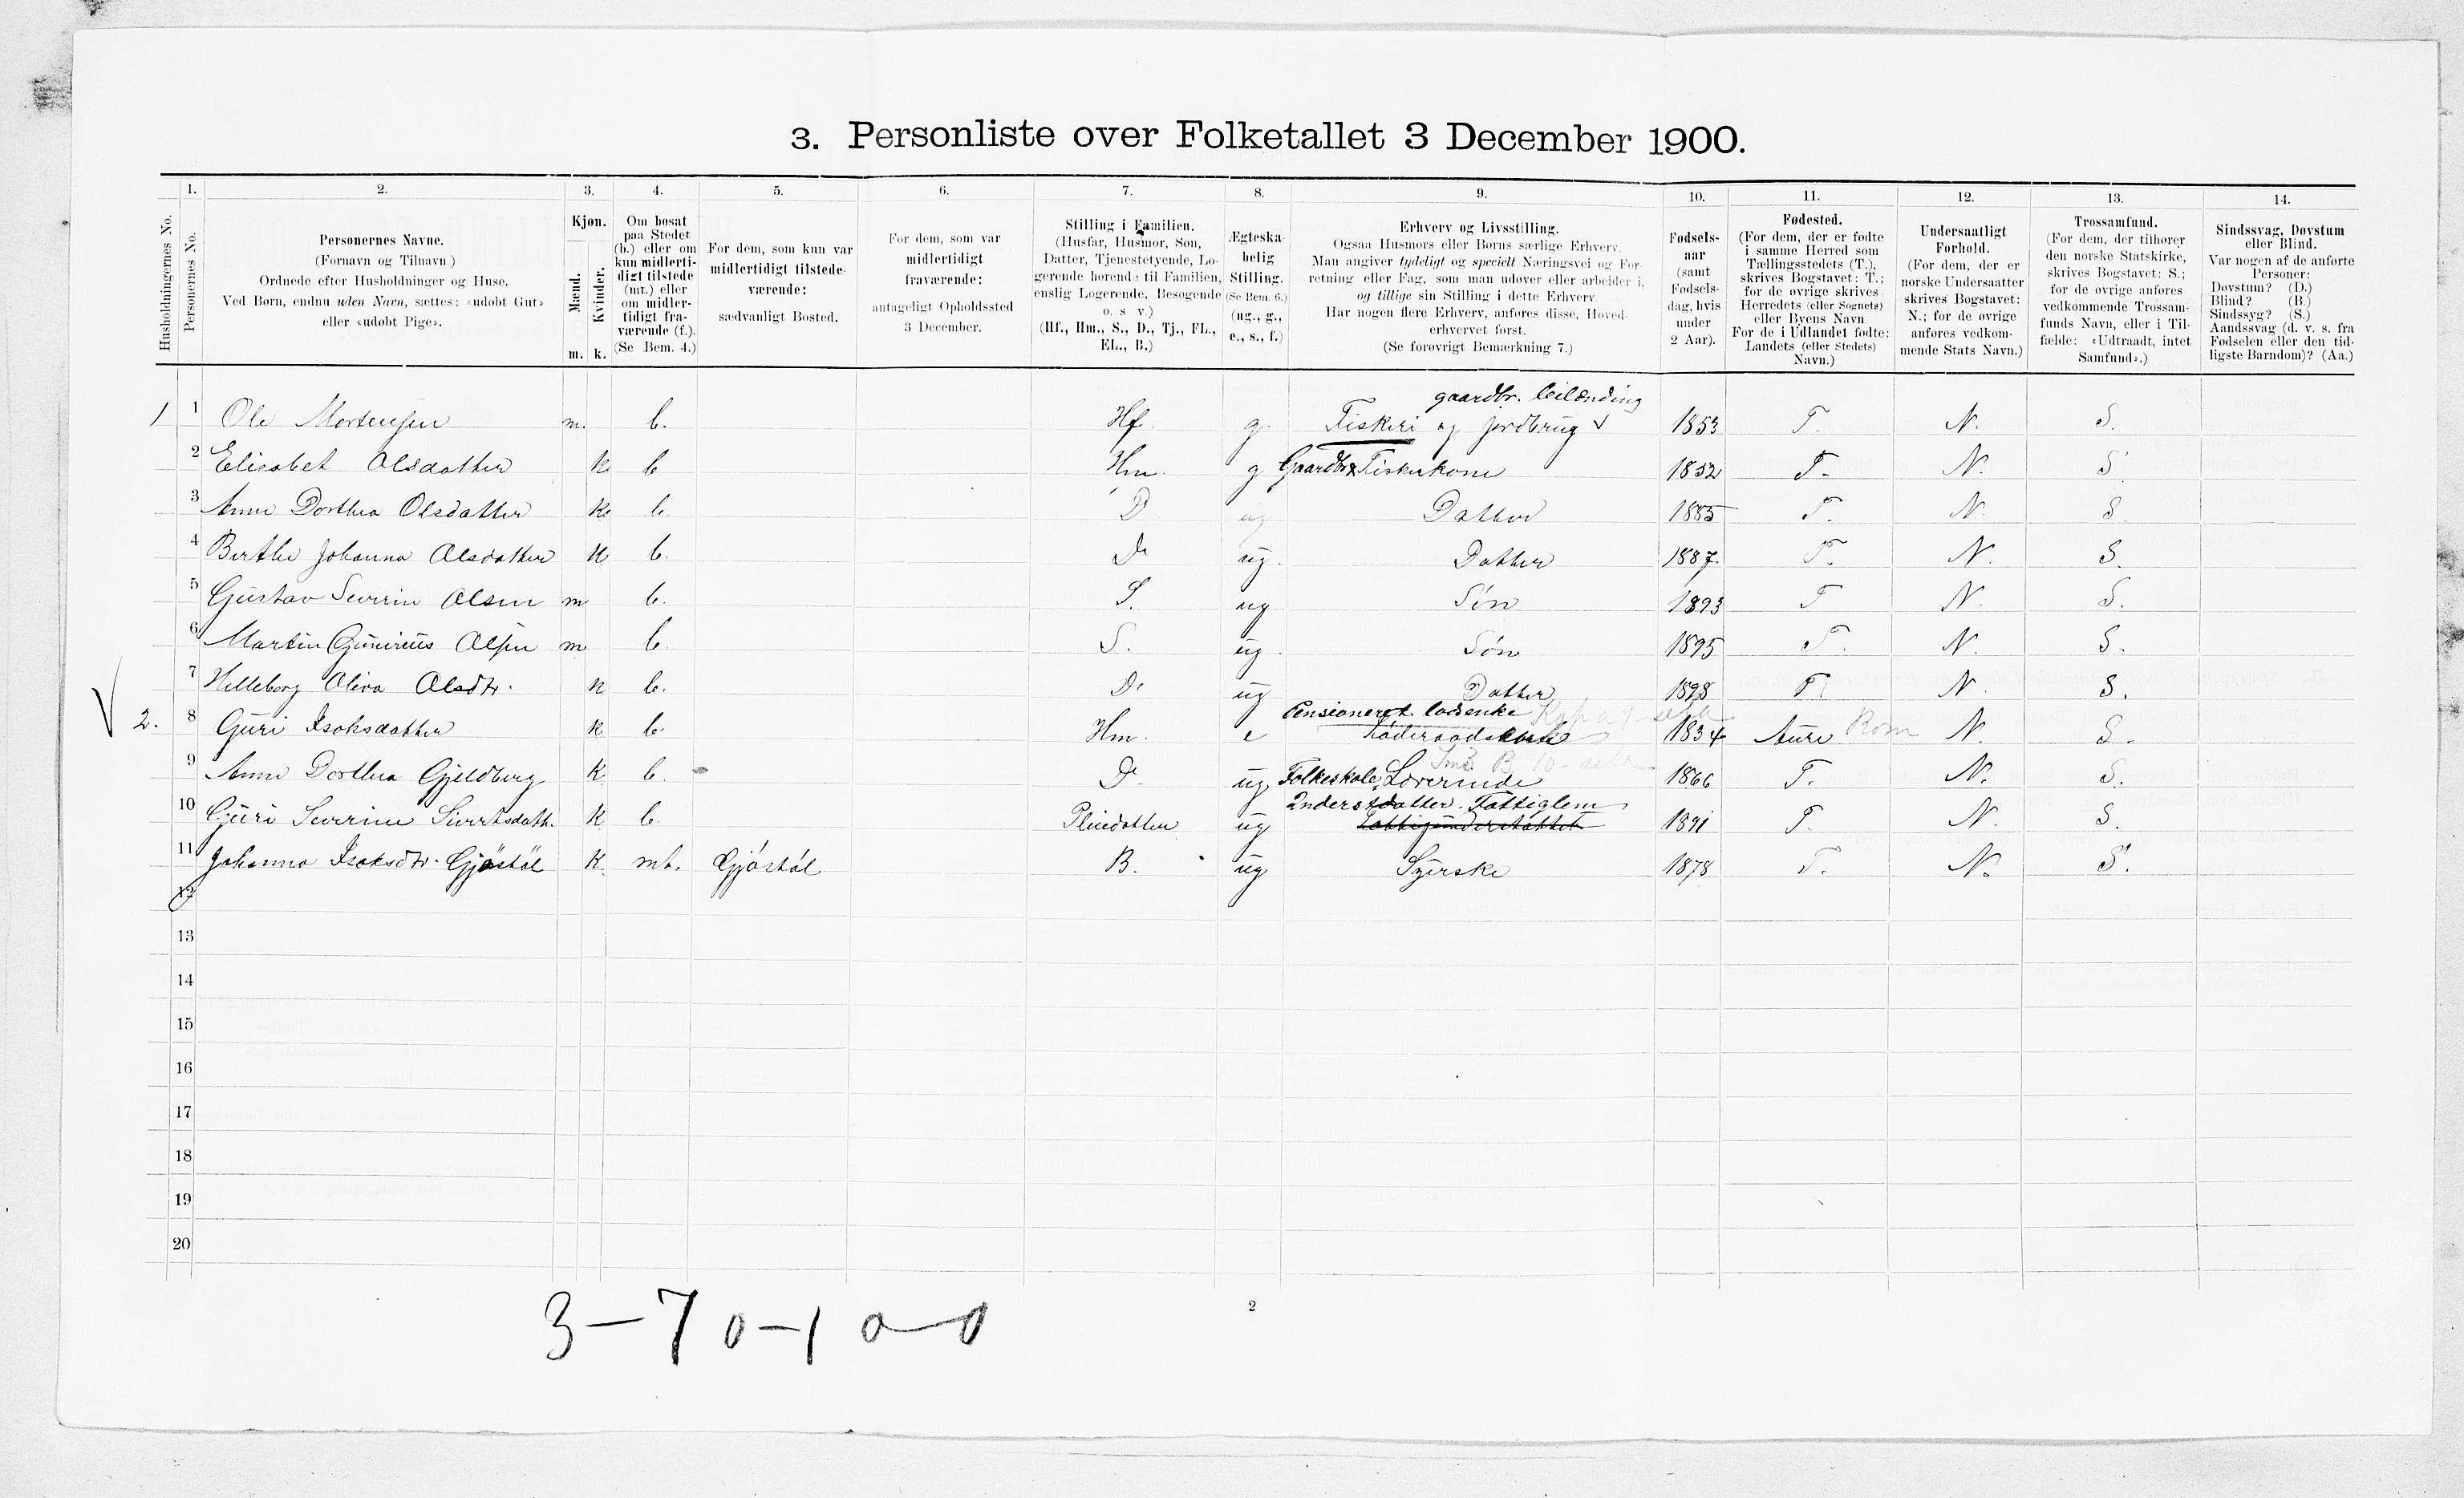 3. Personliste over Folketallet 3 December 1900.
1. 2. 3. 4. 5. 6. 7. 8. 9. 10. 11. 12. 13. 14.
Husholdningernes No.
Personernes No.
Personernes Navne.
(Fornavn og Tilnavn)
Ordnede efter Husholdninger og Huse.
Ved Børn, endnu uden Navn, sættes: «udøbt Gut»
eller «udøbt Pige».
Kjøn.
Mænd.
Kvinder.
m. k.
Om bosat
paa Stedet
(b.) eller om
kun midlerti-
digt tilstede
(mt.) eller
om midler-
tidigt fra-
værende (f.).
(Se Bem. 4.)
For dem, som kun var
midlertidigt tilstede-
værende:
sædvanligt Bosted.
For dem, som var
midlertidigt
fraværende:
antageligt Opholdssted
3 December.
Stilling i Familien.
(Husfar, Husmor, Søn,
Datter, Tjenestetyende, Lo-
gerende hørende til Familien,
enslig Logerende, Besøgende
o. s v.)
(Hf., Hm., S., D., Tj., FL.,
EL., B.)
Ægteska-
belig
Stilling.
(Se Bem. 6.)
(ug., g.,
e., s., f.)
Erhverv og Livsstilling.
Ogsaa Husmors eller Børns særlige Erhverv.
Man angiver tydeligt og specielt Næringsvei og For-
retning eller Fag, som man udøver eller arbeider i,
og tillige sin Stilling i dette Erhverv
Har nogen flere Erhverv, anføres disse, Hoved-
erhvervet først.
(Se forøvrigt Bemærkning 7.)
Fødsels-
aar
(samt
Fødsels-
dag, hvis
under
2 Aar).
Fødested.
(For dem, der er fødte
i samme Herred som
Tællingsstedets (T.),
skrives Bogstavet: T.;
for de øvrige skrives
Herredets (eller Sognets)
eller Byens Navn
For de i Udlandet fødte:
Landets (eller Stedets)
Navn.)
Undersaatligt
Forhold.
(For dem, der er
norske Undersaatter
skrives Bogstavet:
N.; for de øvrige
anføres vedkom-
mende Stats Navn.)
Trossamfund.
(For dem, der tilhører
den norske Statskirke,
skrives Bogstavet: S.;
for de øvrige anføres
vedkommende Trossam-
funds Navn, eller i Til-
fælde: «Udtraadt, intet
Samfund».)
Sindssvag, Døvstum
eller Blind.
Var nogen af de anførte
Personer:
Døvstum? (D.)
Blind? (B.)
Sindssyg? (S.)
Aandssvag (d. v. s. fra
Fødselen eller den tid-
ligste Barndom)? (Aa.)
gaardbr. leilænding
1 1 Ole Mortensen m. b. Hf. g. Fiskeri og jordbrug 1853 T. N. S.
2 Elisabet Olsdatter k b Hm. g Gaardbr & Fiskerkone 1852 T. N. S.
3 Anne Dorthea Olsdatter k b. D ug Datter 1885 T. N. S
4 Berthe Johanna Olsdatter k b. D. ug. Datter 1887. T. N. S.
5 Gustav Severin Olsen m b. S. ug Søn 1893 T N. S.
6 Martin Gunerius Olsen m b. S. ug. Søn 1895 T. N. S.
7 Helleborg Oliva Olsdtr. k b. D. ug Datter 1898 T. N. S.
Pensioneret lodsenke
2. 8 Guri Isaksdatter k b. Hm. e Føderaadsenke 1834 Aure N. S.
9 Anne Dorthea Gjeldberg k b. D. ug. Folkeskole Lærerinde 1866 T. N. S.
Inderstdatter. Fattiglem
10 Guri Severine Sivertsdatt. k b. Pleiedatter ug 1891 T. N. S.
11 Johanna Isaksdtr. Gjøstøl k mt. Gjøstøl B. ug Syerske 1878 T. N. S.
12
13
14
15
16
17
18
19
20
2
3-7 0-1 0-0